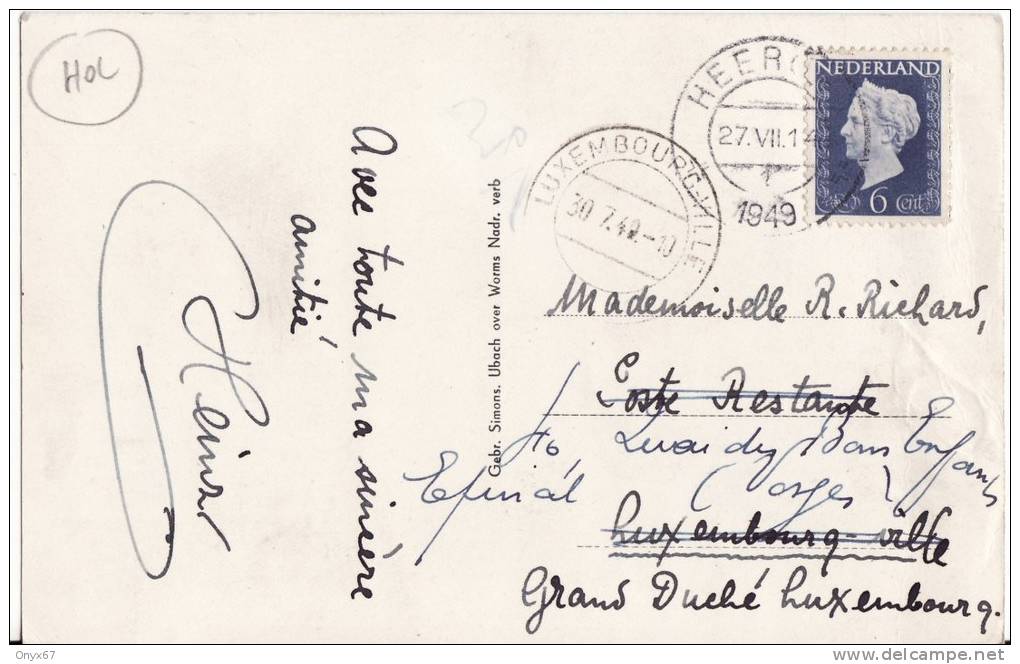 HOL
Avec toute ma sincère
amitié
Heinz
Gebr. Simons. Ubach over Worms Nadr. verb
LUXEMBOURG-VILLE
30.7.49.-10
HEER
27.VII.1
1949
NEDERLAND
6 Cent
Mademoiselle R. Richard,
Poste Restante
Quai des Bons Enfants
Epinal (Vosges)
Luxembourg-ville
Grand Duché Luxembourg.
Onyx67
www.delcampe.net